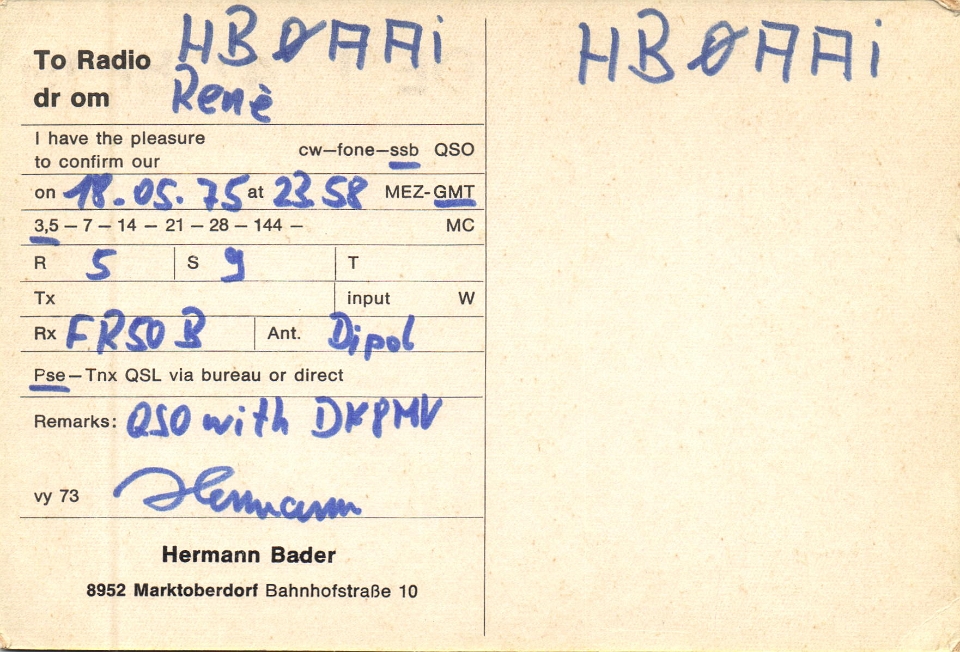 To Radio HBØAAi
dr om Renè
I have the pleasure
to confirm our cw–fone–ssb QSO
on 18.05.75 at 23.58 MEZ-GMT
3,5 – 7 – 14 – 21 – 28 – 144 – MC
R 5 S 9 T
Tx input W
Rx FR50 B Ant. Dipol
Pse–Tnx QSL via bureau or direct
Remarks: QSO with DK8MV
vy 73 Hermann
Hermann Bader
8952 Marktoberdorf Bahnhofstraße 10
HBØAAi